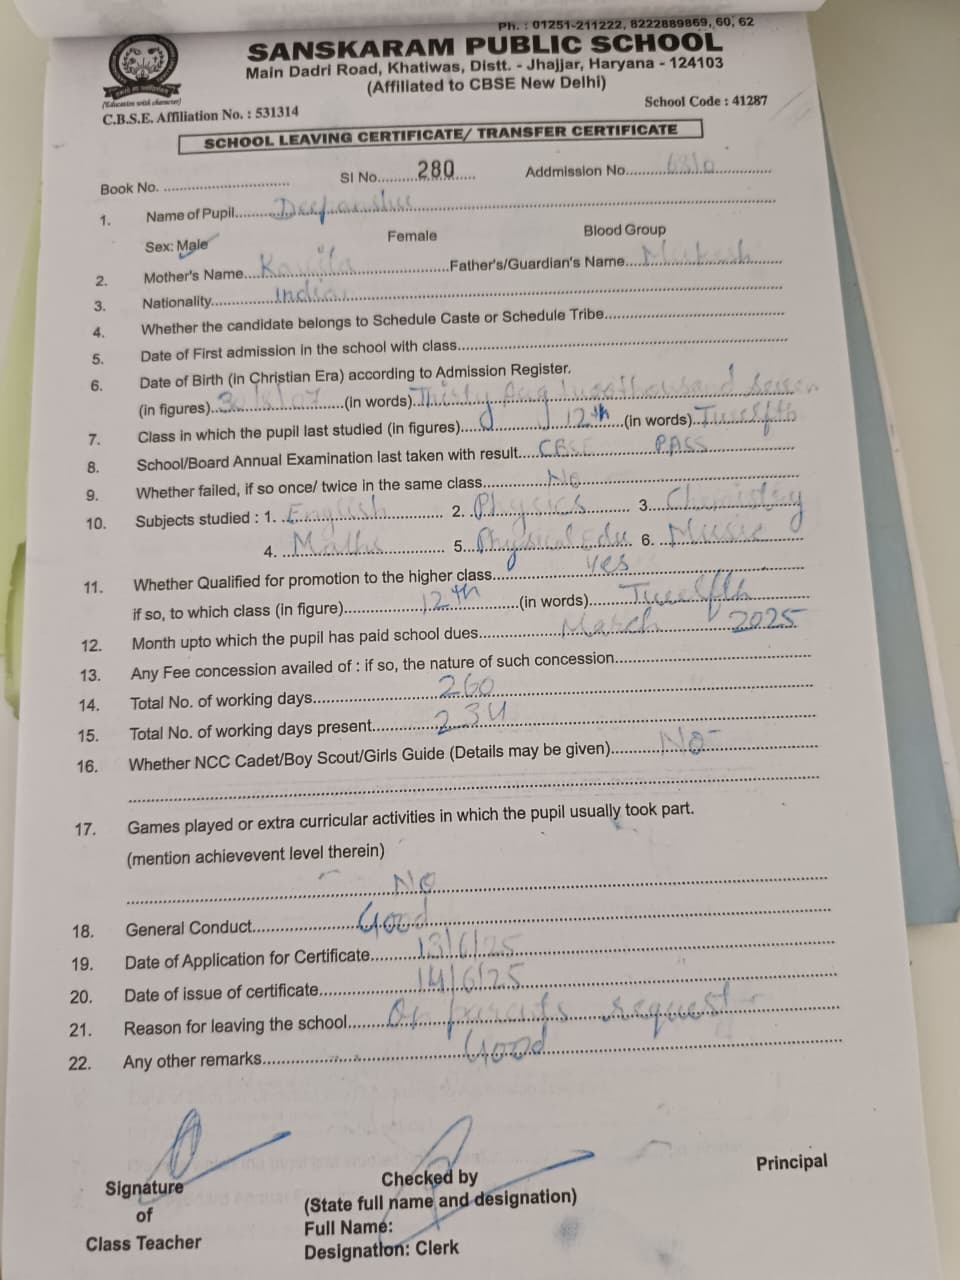 Ph. : 01251-211222, 8222889869, 60, 62
SANSKARAM PUBLIC SCHOOL
Main Dadri Road, Khatiwas, Distt. - Jhajjar, Haryana - 124103
(Affiliated to CBSE New Delhi)
(Education with character)
C.B.S.E. Affiliation No. : 531314 School Code : 41287
SCHOOL LEAVING CERTIFICATE/ TRANSFER CERTIFICATE
Book No. Sl No. 280 Addmission No. 6310
1. Name of Pupil Deepanshu
Sex: Male Female Blood Group
2. Mother's Name Kavita Father's/Guardian's Name Mukesh
3. Nationality Indian
4. Whether the candidate belongs to Schedule Caste or Schedule Tribe
5. Date of First admission in the school with class
6. Date of Birth (in Christian Era) according to Admission Register.
(in figures) 30/8/07 (in words) Thirty Aug twothousand seven
7. Class in which the pupil last studied (in figures) 12th (in words) Twelfth
8. School/Board Annual Examination last taken with result CBSE PASS
9. Whether failed, if so once/ twice in the same class No
10. Subjects studied : 1. English 2. Physics 3. Chemistry
4. Maths 5. Physical Edu. 6. Music
11. Whether Qualified for promotion to the higher class yes
if so, to which class (in figure) 12th (in words) Twelfth
12. Month upto which the pupil has paid school dues March 2025
13. Any Fee concession availed of : if so, the nature of such concession
14. Total No. of working days 260
15. Total No. of working days present 234
16. Whether NCC Cadet/Boy Scout/Girls Guide (Details may be given) No
17. Games played or extra curricular activities in which the pupil usually took part.
(mention achievevent level therein)
No
18. General Conduct Good
19. Date of Application for Certificate 13/6/25
20. Date of issue of certificate 14/6/25
21. Reason for leaving the school On parents request
22. Any other remarks Good
Signature Checked by Principal
of (State full name and designation)
Class Teacher Full Name:
Designation: Clerk